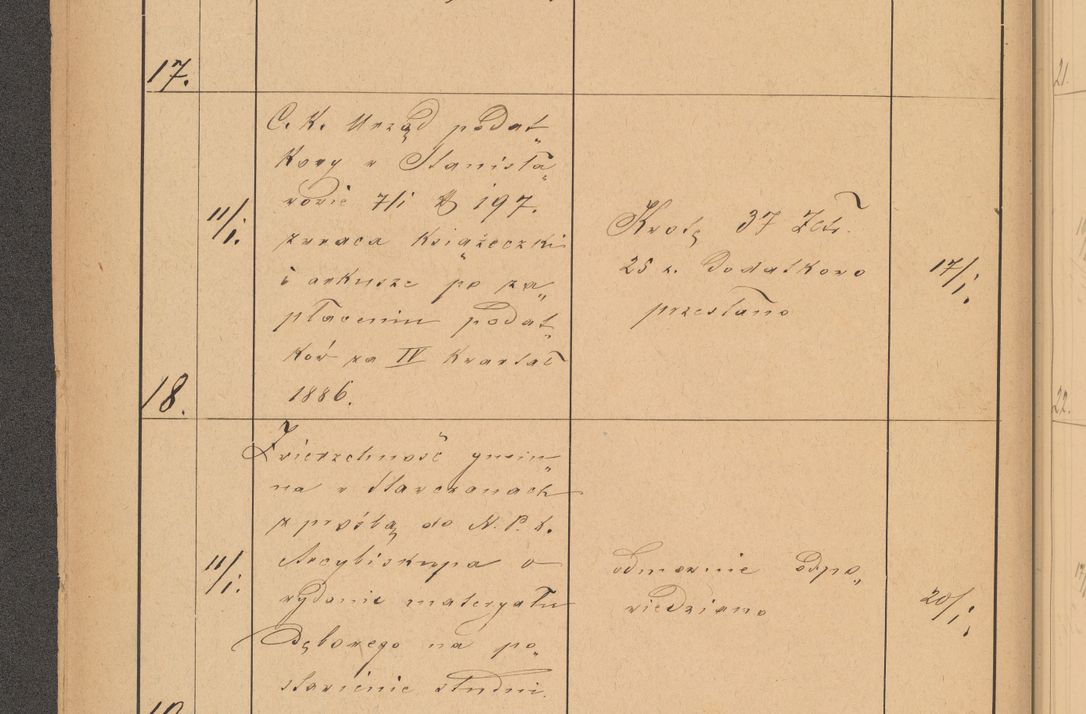 17.
C. K. Urząd podat„
kowy w Stanisła„
wowie 7/1 № 197.
zwraca książeczki
i arkusze po za„
płaceniu podat„
ków za IV kwartał
1886.
11/1.
Kwotę 37 Złr.
25 c. dodatkowo
przesłano
17/1.
18.
Zwierzchność gmin„
na w Starczanach
z prośbą do N. P. X.
Arcybiskupa o
wydanie materyału
dębowego na po„
stawienie studni.
11/1.
odmownie odpo„
wiedziano
20/1.
19
21.
22.